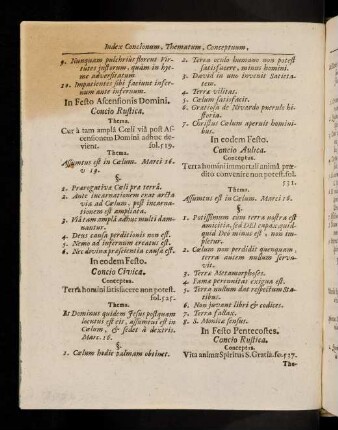 Index Concionum, Thematum, Conceptuum,
9. Nunquam pulchriùs florent Vir-
tutes justorum, quàm in hye-
me adversitatum
10. Impatientes sibi faciunt infer-
num ante infernum.
In Festo Ascensionis Domini.
Concio Rustica.
Thema.
Cur à tam ampla Cœli viâ post As-
censionem Domini adhuc de-
vient. fol. 519.
Thema.
Assumtus est in Cœlum. Marci 16.
v 19.
§.
1. Prærogativa Cœli præ terrâ.
2. Ante incarnationem erat arcta
via ad Cœlum, post incarna-
tionem est ampliata.
3. Via tam amplâ adhuc multi dam-
nantur.
4. Deus causa perditionis non est.
5. Nemo ad infernum creatus est.
6. Nec divina præscientia causa est.
In eodem Festo.
Concio Civica.
Conceptus.
Terra homini satisfacere non potest.
fol. 525.
Thema.
Et Dominus quidem Jesus postquam
locutus est eis, assumtus est in
Cœlum, & sedet à dextris.
Marc. 16.
§.
1. Cœlum hodie palmam obtinet.
2. Terra oculo humano non potest
satisfacere, minus homini.
3. David in uno invenit Satieta-
tem.
4. Terræ vilitas.
5. Cœlum satisfacit.
6. Gratiosa de Nivardo puerulo hi-
storia.
7. Christus Cœlum aperuit homini-
bus.
In eodem Festo.
Concio Aulica.
Conceptus.
Terra homini immortali animâ præ-
dito convenire non potest. fol.
531.
Thema.
Assumtus est in Cœlum. Marci 16.
§.
1. Potissimum cum terra nostra est
amicitia, sed DEI capax, quid-
quid Deo minus est, non im-
pletur.
2. Cœlum non perdidit quenquam,
terra autem nullum serva-
vit.
3. Terræ Metamorphoses.
4. Fama perennitas exigua est.
5. Terra nullum dat respectum Sta-
tibus.
6. Non juvant libri & codices.
7. Terra fallax.
8. S. Monicæ sensus.
In Festo Pentecostes.
Concio Rustica.
Conceptus.
Vita animæ Spiritus S. Gratia. fo. 537.
The-